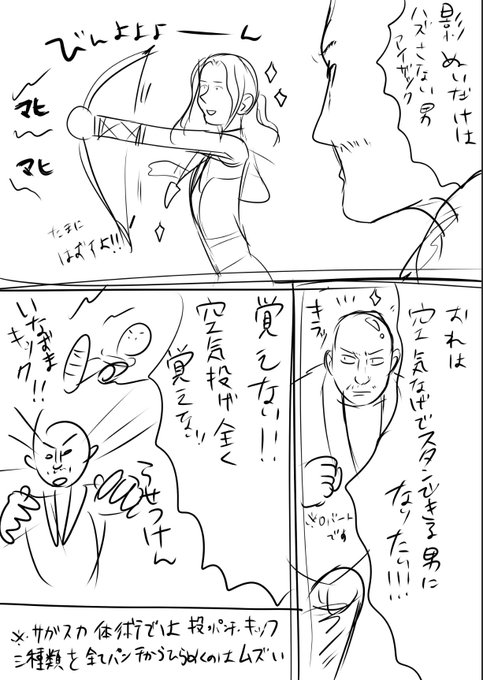 影ぬいだけは
ハズさない男
アイザック
びんよょょーん
マヒ
マヒ
たまに
はずすよ!!
おれは
空気なげで
スタンできる男に
なりたい!!!
キラッ
※ロバート
です
覚えない!!
空気投げ全く
覚えない!!
いなずま
キック!!
らせつけん
※サガスカ 体術では 投・パンチ・キック
三種類を全てパンチからひらめくのはムズい